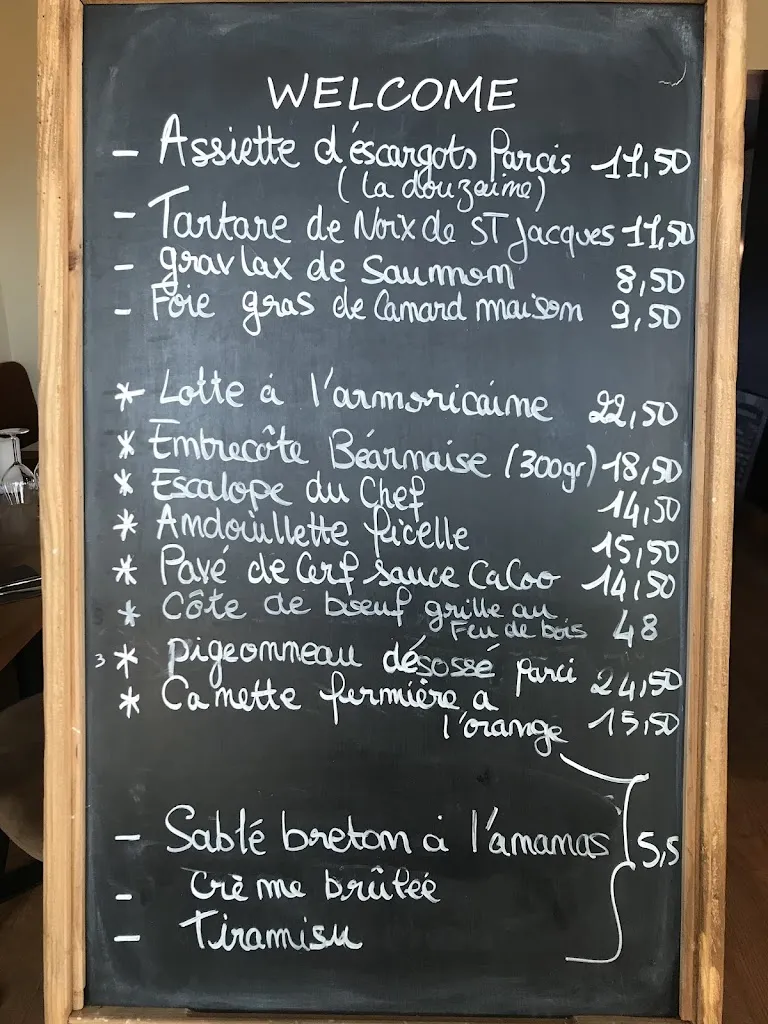 WELCOME
- Assiette d'éscargots Farcis 11,50
(la douzaine)
- Tartare de Noix de ST Jacques 11,50
- gravlax de Saumon 8,50
- Foie gras de Canard maison 9,50
* Lotte à l'armoricaine 22,50
* Entrecôte Béarnaise (300gr) 18,50
* Escalope du Chef 14,50
* Andouillette ficelle 15,50
* Pavé de Cerf sauce Cacao 14,50
* Côte de bœuf grille au
Feu de bois 48
3 * pigeonneau désossé farci 24,50
* Canette fermière a
l'orange 15,50
- Sablé breton à l'ananas 5,5
- Crème brûlée
- Tiramisu